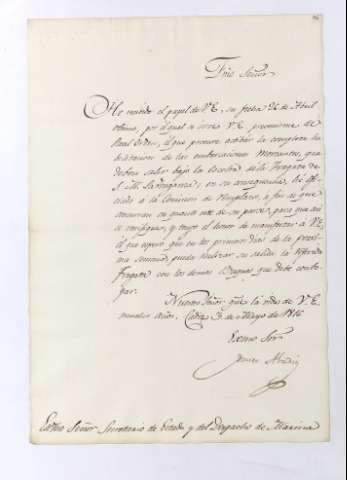 Exmo Señor
He recibido el papel de V.E. su fecha 26 de Abril
ultimo, por el qual se sirve V.E. prevenirme de
Real orden, el que procure activar la completa ha
bilitacion de las embarciones Mercantes, que
deben salir bajo la Escolta de la Fragata de
S.M. la Venganza; en su consequencia, hé ofi
ciado a la Comision de Reemplazos, a fin de que
concurran en quanto este de su parte, para que asi
se verifique, y tengo el honor de manifestar á V.E.
el que espero que en los primeros dias de la proxi
ma semana pueda realizar su salida la referida
Fragata con los demas Buques que debe convo
yar.
Nuestro Señor gue. la vida de V.E.
muchos años. Cadiz 3 de Mayo de 1816
Exmo Sor.
Exmo Señor Secretario de Estado y del Despacho de Marina